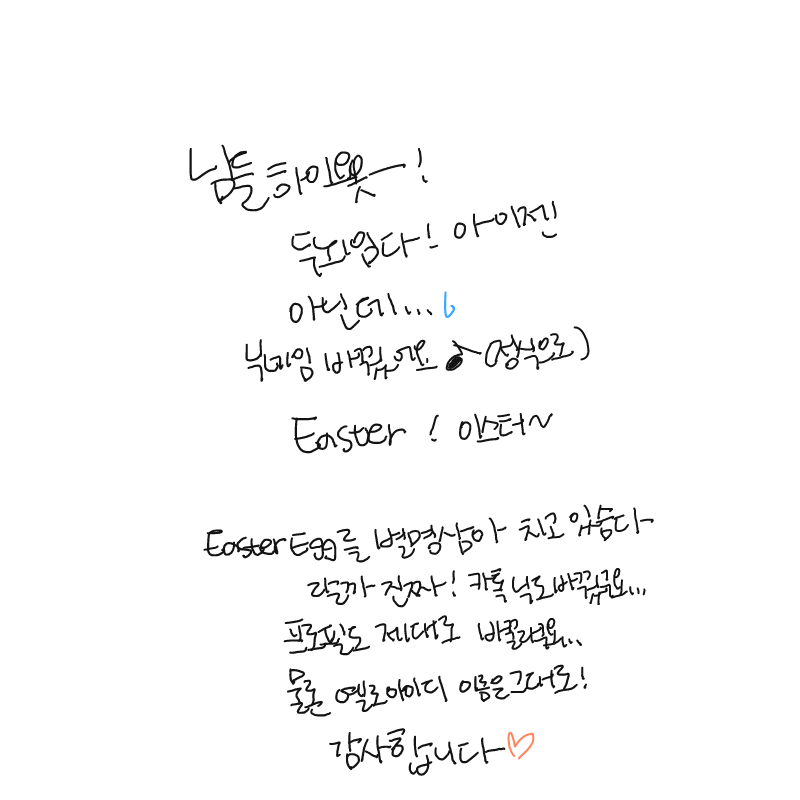 님들 하이욧-!
둑뇌임다! 아이젠
아닌데...
닉네임 바꿨어요 ♪ (정식으로)
Easter! 이스터~
Easter Egg를 별명삼아 치고 있슴다
랄까 진짜! 카톡 닉도 바꿨구요...
프로필도 제대로 바꿀라구요...
물론 옐로아이디 이름은 그대로!
감사합니다♡